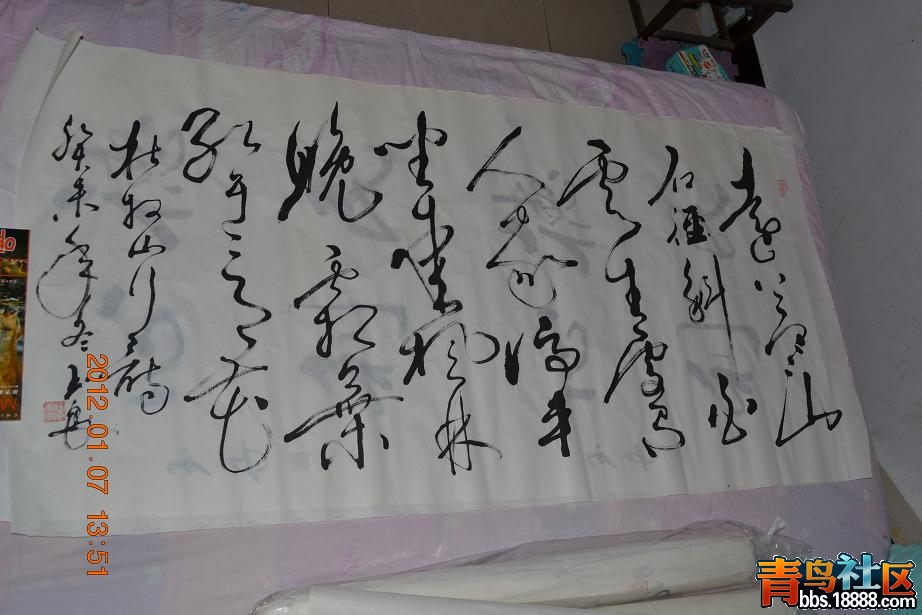 遠上寒山
石徑斜白
雲生處有
人家停車
坐愛楓林
晚霜葉
紅於二月花
杜牧山行詩
癸未年冬
2012.01.07 13:51
青鸟社区
bbs.18888.com